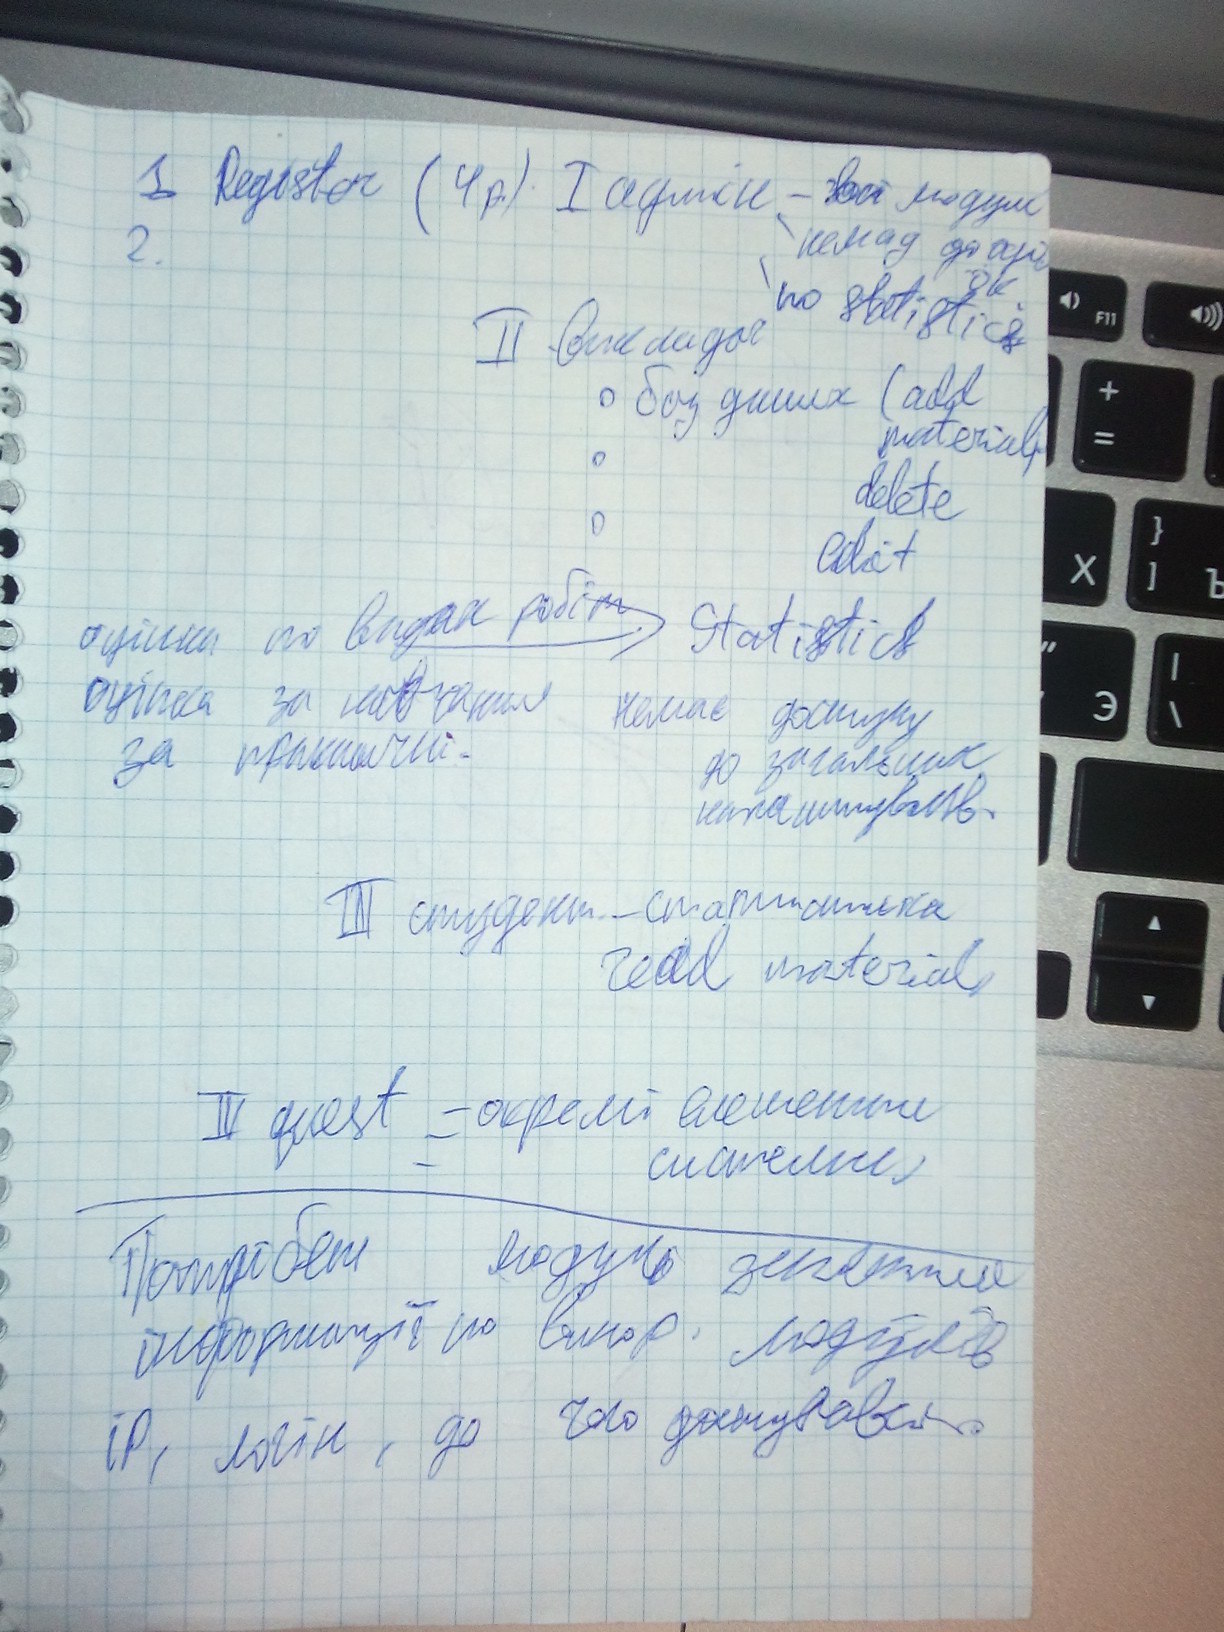 1 Register (4 р.) I адмін – всі модулі
2.
по statistics
II Викладач
баз даних (add
material,
delete
edit
оцінка по видах робіт Statistics
оцінка за навчання немає доступу
за практичні. до загальних
налаштувань.
III студент – статистика
read material,
IV guest – окремі елементи
системи,
Потрібен модуль
інформації по викор. модулів
IP, логін, до чого
F11
+
=
}
]
Х
Ъ
"
'
Э
|
\